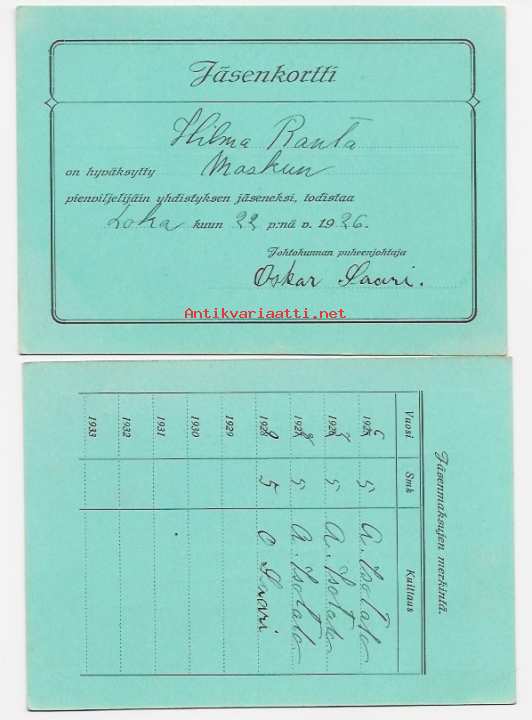 Jäsenkortti
Hilma Ranta
on hyväksytty Maskun
pienviljelijäin yhdistyksen jäseneksi, todistaa
Loka kuun 22 p:nä v. 1926.
Johtokunnan puheenjohtaja
Oskar Saari.
Antikvariaatti.net
Jäsenmaksujen merkintä.
Vuosi Smk Kuittaus
1926 5 A. Isotalo
1927 5 A. Isotalo
1928 5 A. Isotalo
1929 5 O Saari
1929
1930
1931
1932
1933